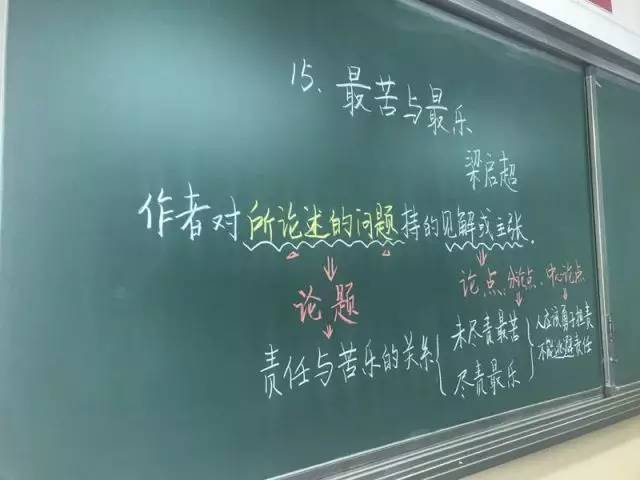 15、最苦与最乐
梁启超
作者对所论述的问题持的见解或主张.
论题
论点、分论点、中心论点
责任与苦乐的关系
未尽责最苦
尽责最乐
人应该勇于担责
不能逃避责任